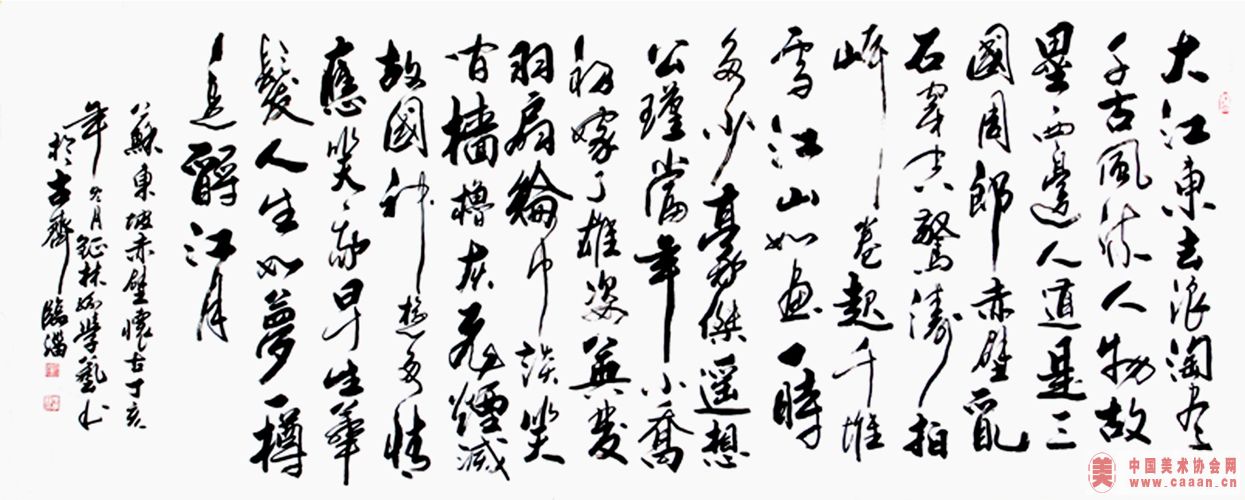 大江東去浪淘盡
千古風流人物故
壘西邊人道是三
國周郎赤壁亂
石穿空驚濤拍
岸卷起千堆
雪江山如畫一時
多少豪傑遥想
公瑾當年小喬
初嫁了雄姿英發
羽扇綸巾談笑
間檣櫓灰飛煙滅
故國神遊多情
應笑我早生華
髮人生如夢一樽
還酹江月
蘇東坡赤壁懷古丁亥
年冬月學藝书
於古齊臨淄
美 中国美术协会网
www.caaan.cn